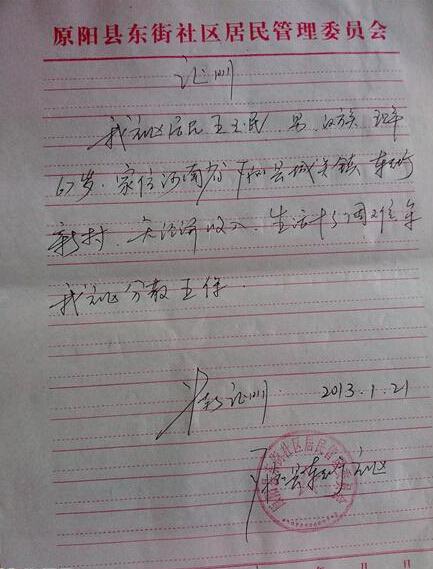 原阳县东街社区居民管理委员会
证明
我社区居民王玉民 男 汉族 现年
67岁. 家住河南省原阳县城关镇东街
新村. 无经济收入. 生活十分困难 是
我社区分散五保.
特此证明 2013.1.21
原阳县东街社区